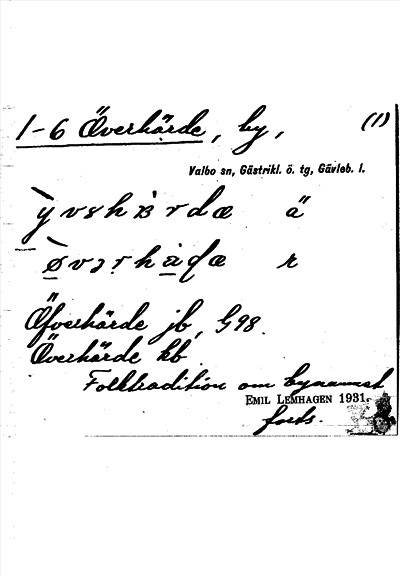 1-6 Överhärde, by, (1)
Valbo sn, Gästrikl. ö. tg, Gävleb. l.
ä
r
Öfverhärde jb, G98.
Överhärde kb
Folktradition om bynamnet
EMIL LEMHAGEN 1931.
forts.